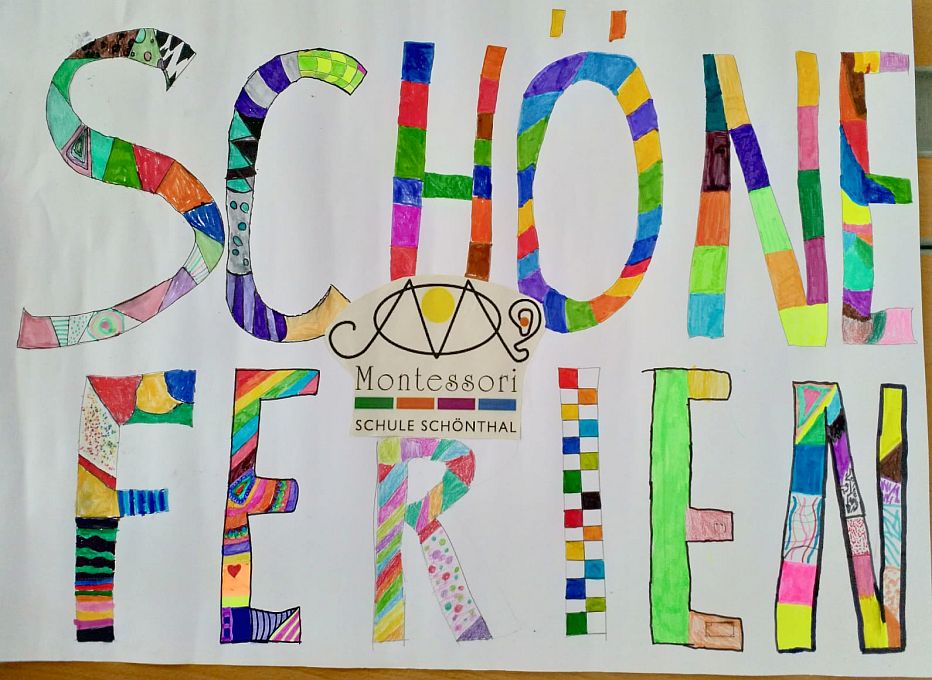 SCHÖNE
Montessori
SCHULE SCHÖNTHAL
FERIEN